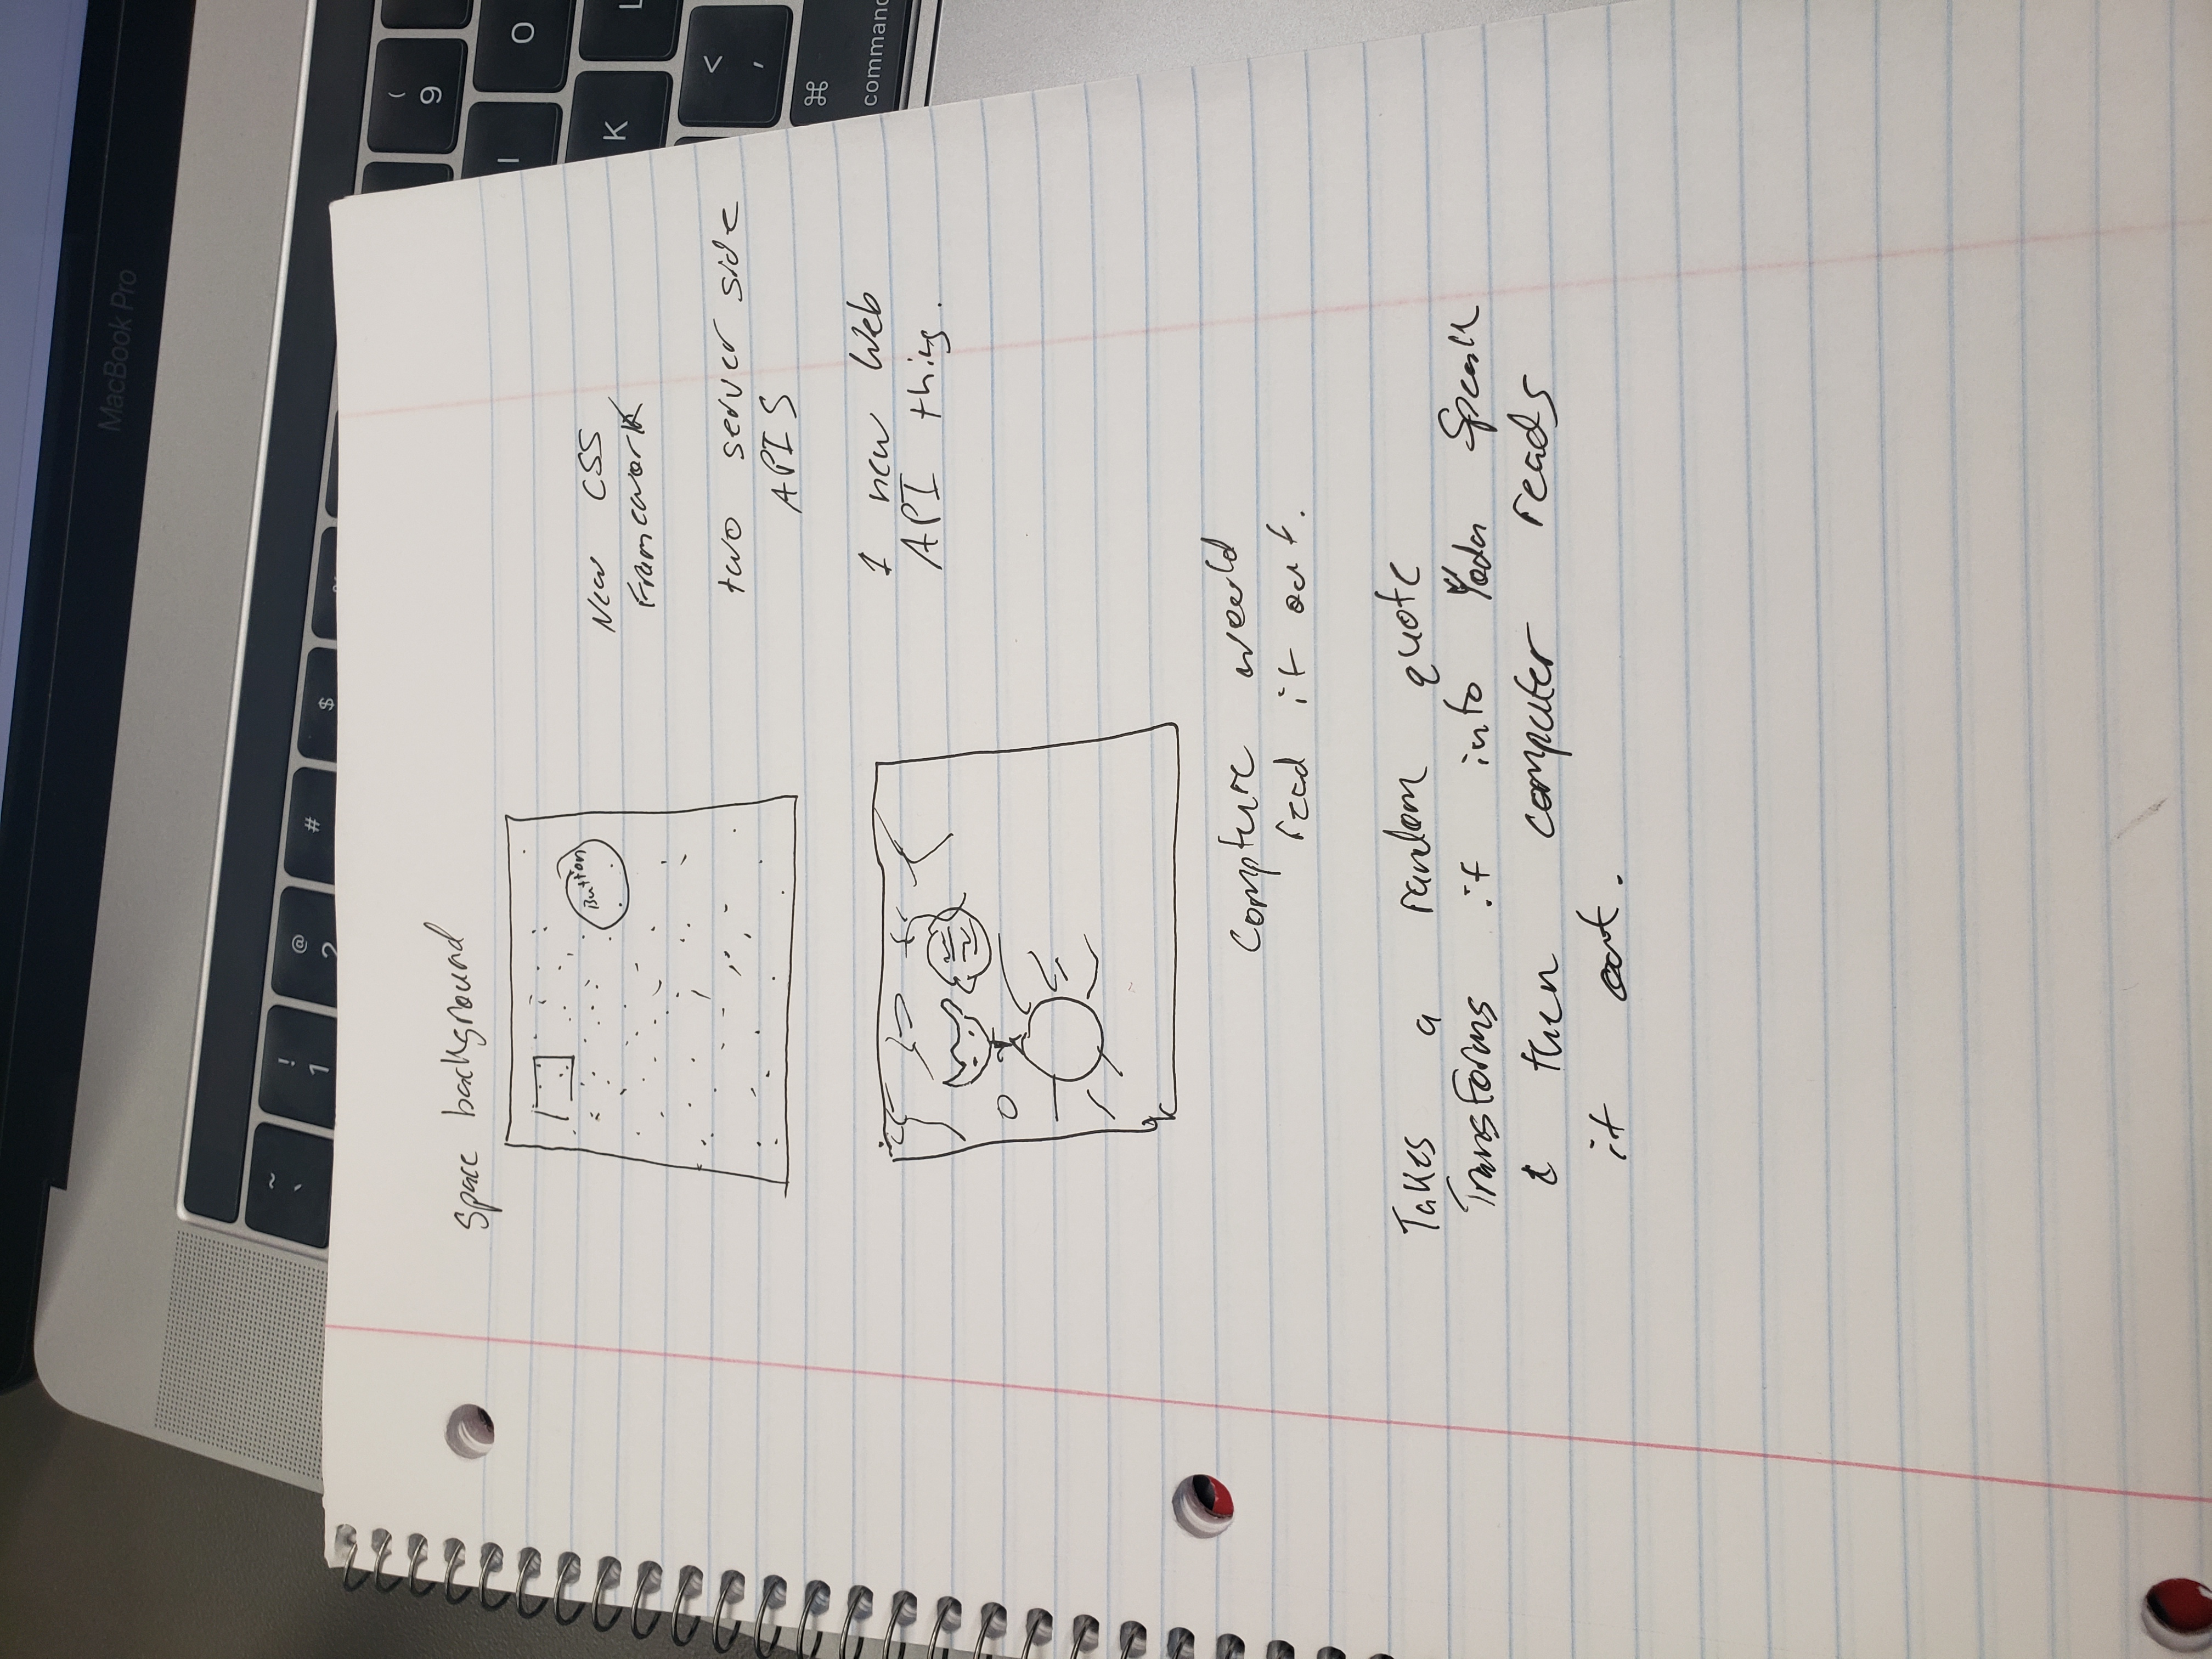 MacBook Pro
~
`
!
1
@
2
#
$
%
(
9
I
O
K
L
<
,
⌘
command
Space background
Button
New CSS
Framework
two server side
APIS
1 new Web
API thing.
Compture would
read it out.
Takes a random quote
Transforms it into Yoda Speak
& then computer reads
it out.